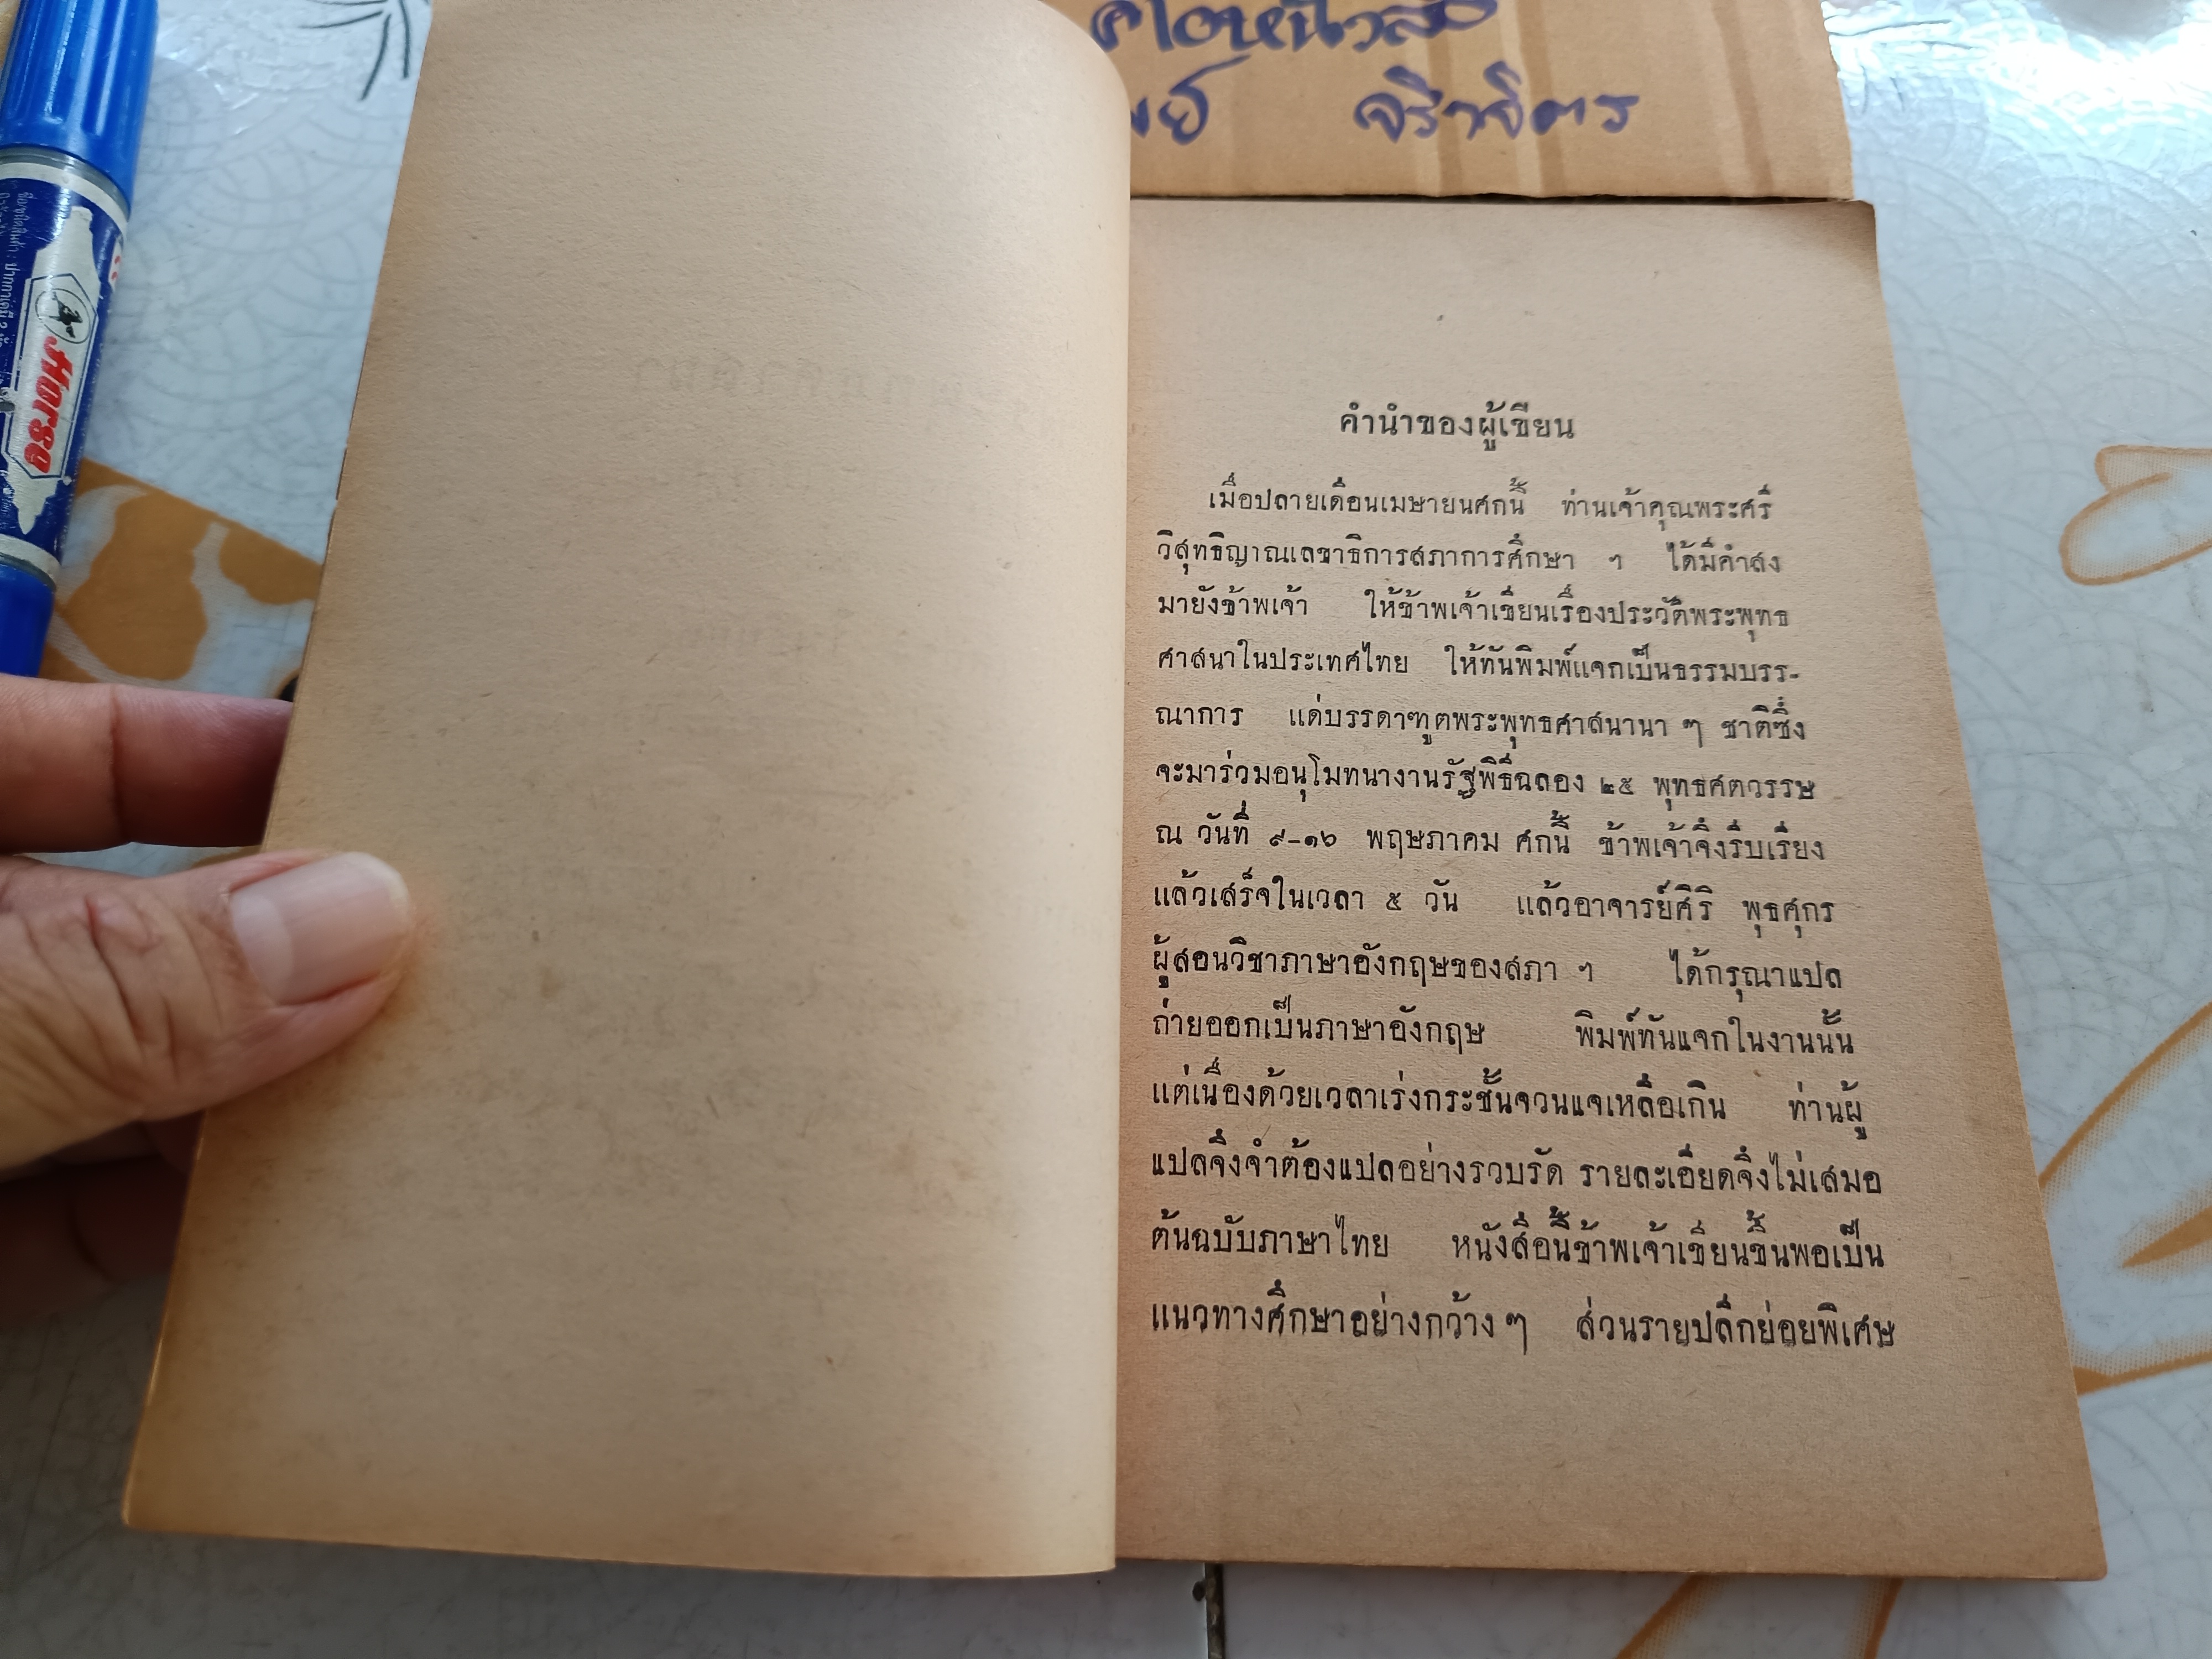 จริวจิตร
Horse
คำนำของผู้เขียน
เมื่อปลายเดือนเมษายนศกนี้ ท่านเจ้าคุณพระศรี
วิสุทธิญาณเลขาธิการสภาการศึกษา ฯ ได้มีคำสั่ง
มายังข้าพเจ้า ให้ข้าพเจ้าเขียนเรื่องประวัติพระพุทธ
ศาสนาในประเทศไทย ให้ทันพิมพ์แจกเป็นธรรมบรร-
ณาการ แด่บรรดาฑูตพระพุทธศาสนานา ๆ ชาติซึ่ง
จะมาร่วมอนุโมทนางานรัฐพิธีฉลอง ๒๕ พุทธศตวรรษ
ณ วันที่ ๙-๑๖ พฤษภาคม ศกนี้ ข้าพเจ้าจึงรีบเรียง
แล้วเสร็จในเวลา ๕ วัน แล้วอาจารย์ศิริ พุธศุกร
ผู้สอนวิชาภาษาอังกฤษของสภา ฯ ได้กรุณาแปล
ถ่ายออกเป็นภาษาอังกฤษ พิมพ์ทันแจกในงานนั้น
แต่เนื่องด้วยเวลาเร่งกระชั้นจวนแจเหลือเกิน ท่านผู้
แปลจึงจำต้องแปลอย่างรวบรัด รายละเอียดจึงไม่เสมอ
ต้นฉบับภาษาไทย หนังสือนี้ข้าพเจ้าเขียนขึ้นพอเป็น
แนวทางศึกษาอย่างกว้าง ๆ ส่วนรายปลีกย่อยพิเศษ